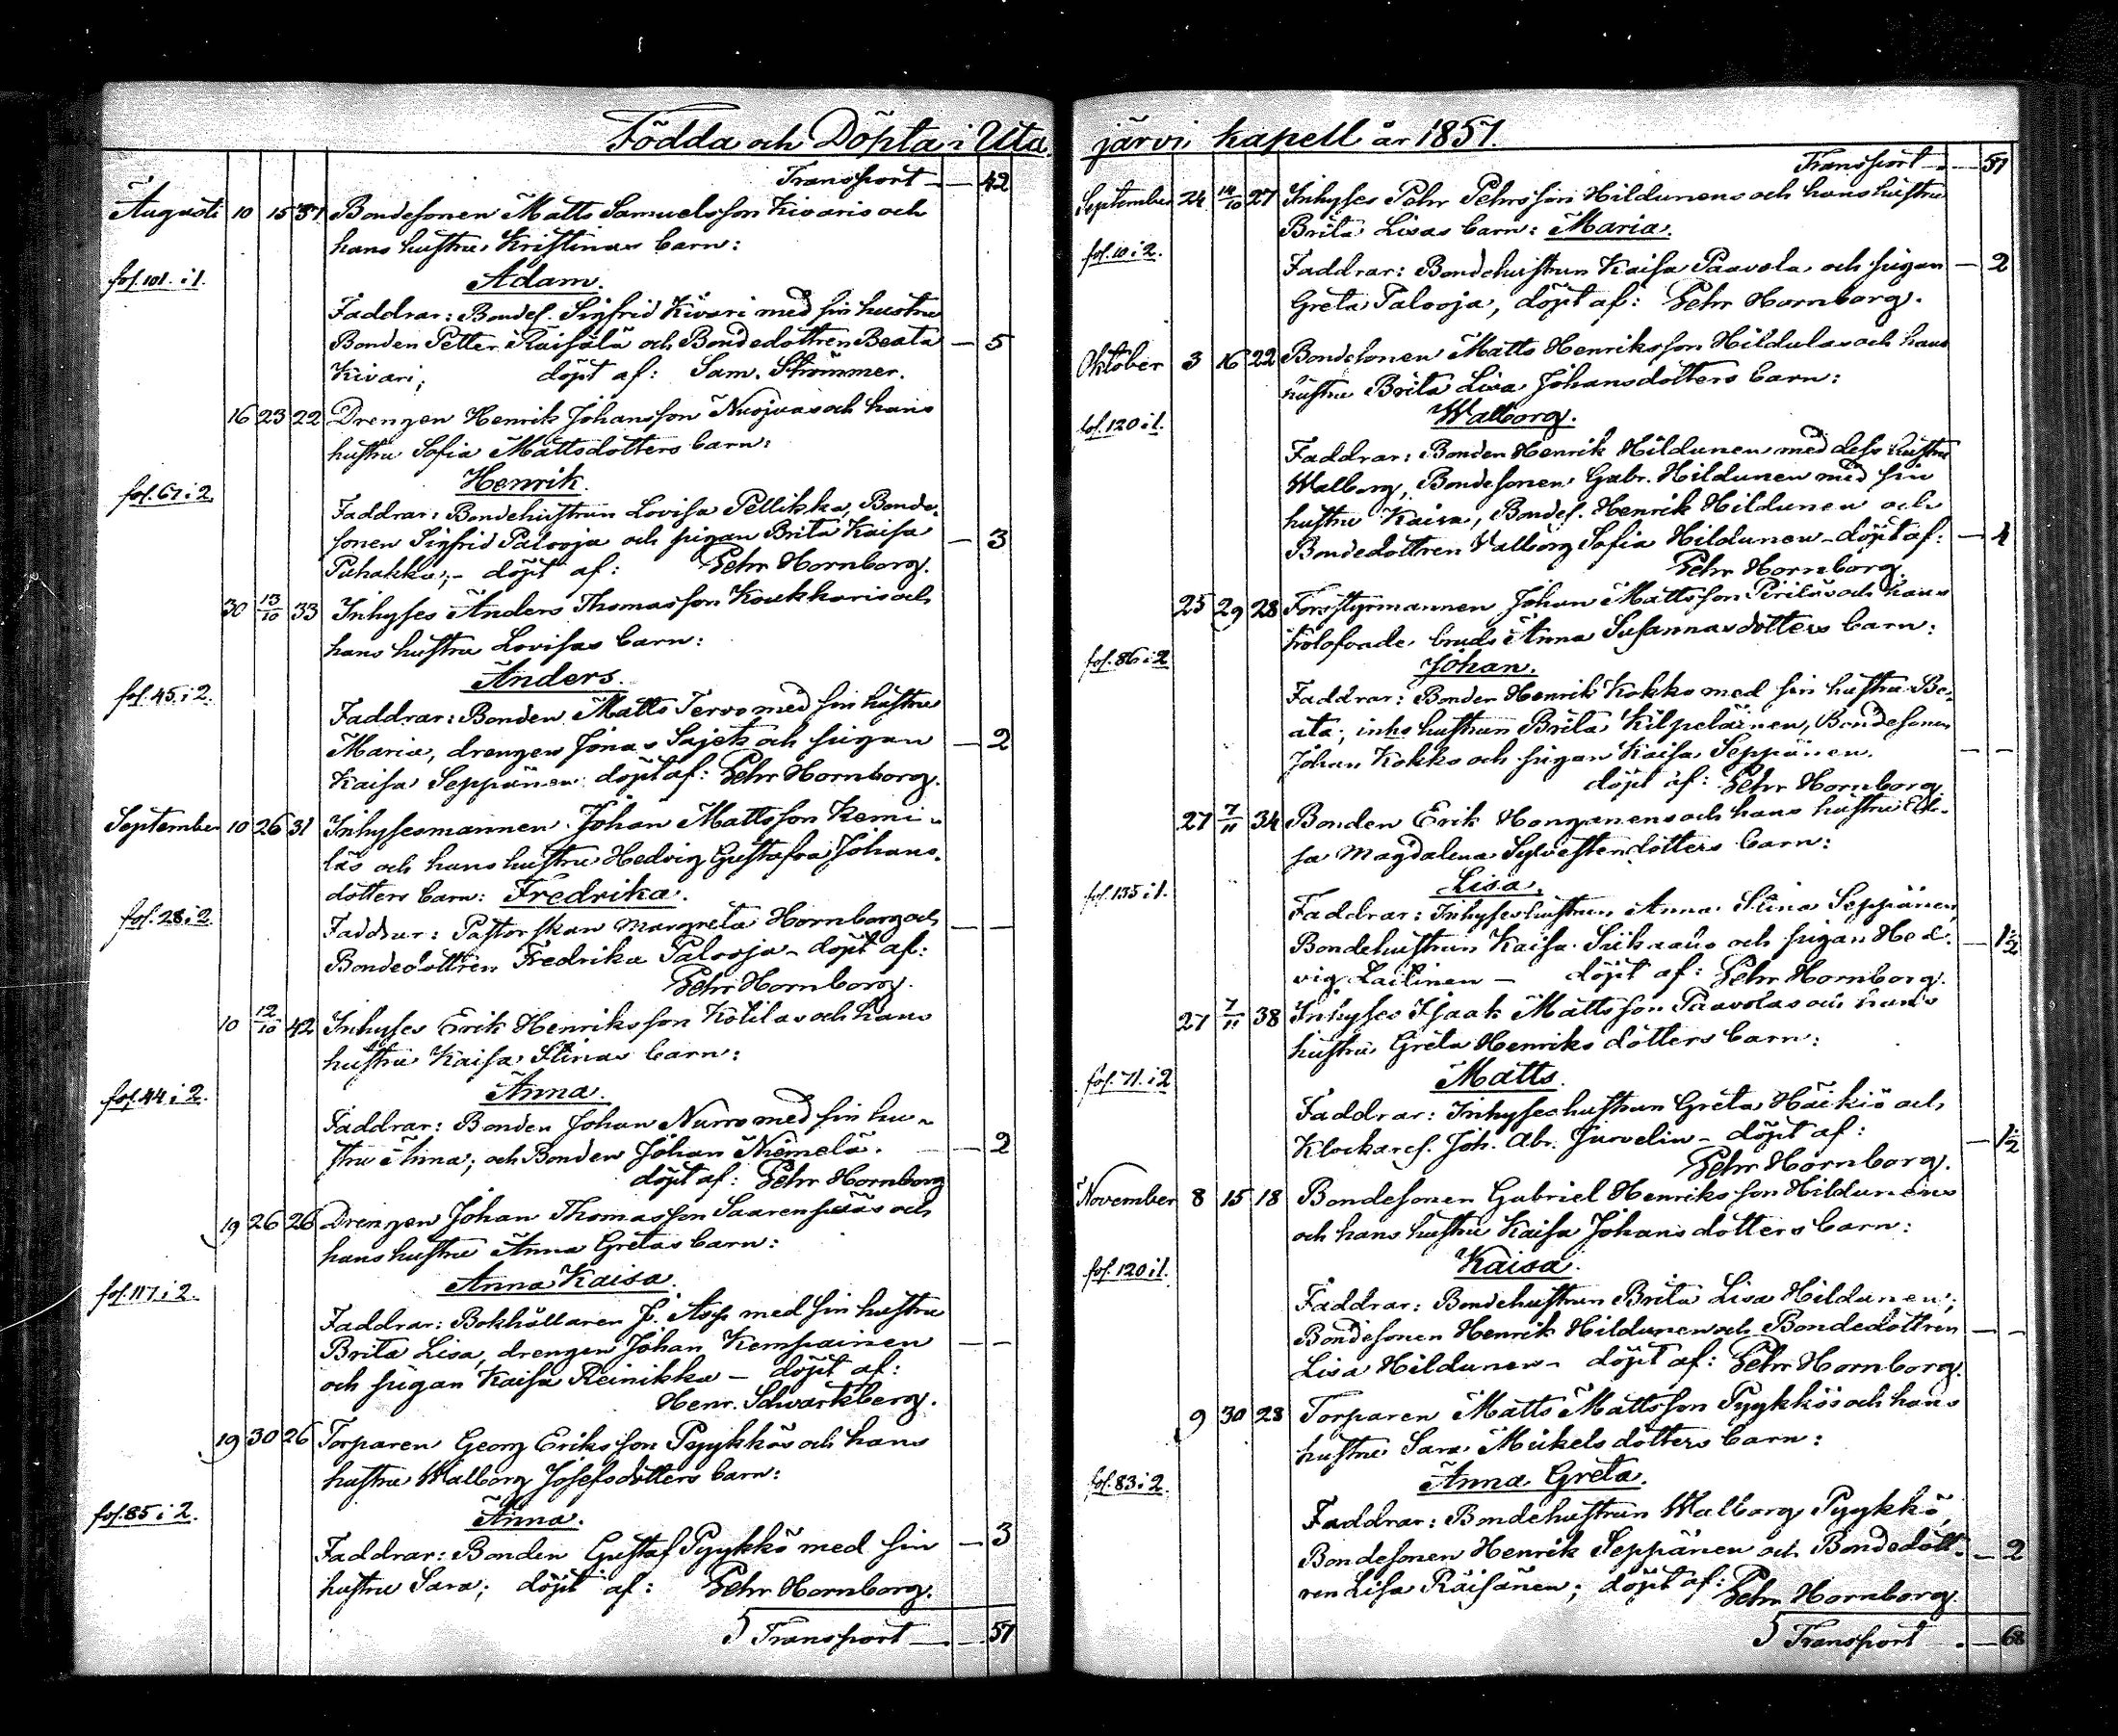 Födda och Döpta i Uta
Transport — 42
Augusti 10 15 37 Bondesonen Matts Samuelsson Kivaris och
hans hustru Kristinas barn:
fol. 101. i 1. Adam.
Faddrar: Bondes. Sigfrid Kivari med sin hustru
Bonden Petter Räisälä och Bondedottren Beata — 5
Kivari; döpt af: Sam. Strömmer.
16 23 22 Drengen Henrik Johansson Nuojuas och hans
hustru Sofia Mattsdotters barn:
fol. 67 i 2. Henrik.
Faddrar: Bondehustrun Lovisa Pellikka, Bonde-
sonen Sigfrid Palooja och pigan Brita Kaisa — 3
Puhakka; – döpt af: Pehr Hornborg.
30 13/10 33 Inhyses Anders Thomasson Koukkaris och
hans hustru Lovisas barn:
fol. 45. i 2. Anders.
Faddrar: Bonden Matts Tervo med sin hustru
Maria, drengen Jonas Sajets och pigan — 2
Kaisa Seppänen döpt af: Pehr Hornborg.
September 10 26 31 Inhysesmannen Johan Mattsson Kemi-
läs och hans hustru Hedvig Gustafva Johans-
dotters barn: Fredrika.
fol. 28 i 2. Faddrar: Pastorskan Margreta Hornborg och — –
Bondedottren Fredrika Palooja – döpt af:
Pehr Hornborg.
10 12/10 42 Inhyses Erik Henriksson Kotilas och hans
hustru Kaisa Stinas barn:
fol. 44 i 2. Anna.
Faddrar: Bonden Johan Nurro med sin hu-
stru Anna; och Bonden Johan Niemelä. — 2
döpt af: Pehr Hornborg
19 26 26 Drengen Johan Thomasson Saarenpääs och
hans hustru Anna Gretas barn:
fol. 117 i 2. Anna Kaisa.
Faddrar: Bokhållaren J. Asp med sin hustru
Brita Lisa, drengen Johan Kempainen — –
och pigan Kaisa Reinikka – döpt af:
Henr. Schwartzberg.
19 30 26 Torparen Georg Eriksson Pyykkös och hans
hustru Walborg Josefsdotters barn:
fol. 85 i 2. Anna.
Faddrar: Bonden Gustaf Pyykkö med sin — 3
hustru Sara; döpt af: Pehr Hornborg.
Transport — 57
järvi kapell år 1851.
Transport — 57
September 24 14/10 27 Inhyses Pehr Pehrsson Hildunens och hans hustru
Brita Lisas barn: Maria.
fol. 10 i 2. Faddrar: Bondehustrun Kaisa Paavola och pigan — 2
Greta Palooja, döpt af: Pehr Hornborg.
Oktober 3 16 22 Bondesonen Matts Henriksson Hildulas och hans
hustru Brita Lisa Johansdotters barn:
fol. 120 i 1. Walborg.
Faddrar: Bonden Henrik Hildunen med dess hustru
Walborg, Bondesonen Gabr. Hildunen med sin
hustru Kaisa, Bondes. Henrik Hildunen och
Bondedottren Valborg Sofia Hildunen – döpt af: — 4
Pehr Hornborg.
25 29 28 Forsstyrmannen Johan Mattsson Pirilas och hans
trolofvade bruds Anna Susannasdotters barn:
fol. 86 i 2 Johan.
Faddrar: Bonden Henrik Kokko med sin hustru Be-
ata; inhs hustrun Brita Kilpeläinen, Bondesonen
Johan Kokko och pigan Kaisa Seppänen. — –
döpt af: Pehr Hornborg.
27 7/11 34 Bonden Erik Honganens och hans hustru El-
sa Magdalena Sylvestersdotters barn:
fol. 135 i 1. Lisa.
Faddrar: Inhyseshustrun Anna Stina Seppänen,
Bondehustrun Kaisa och pigan Hed- — 1½
vig Laitinen – döpt af: Pehr Hornborg.
27 7/11 38 Inhyses Isaak Mattsson Paavolas och hans
hustru Greta Henriksdotters barn:
fol. 71. i 2 Matts.
Faddrar: Inhyseshustrun Greta Häikiö och
Klockares. Joh. Abr. Jurvelin – döpt af: — 1½
Pehr Hornborg.
November 8 15 18 Bondesonen Gabriel Henriksson Hildunens
och hans hustru Kaisa Johansdotters barn:
fol. 120 i 1. Kaisa.
Faddrar: Bondehustrun Brita Lisa Hildunen;
Bondesonen Henrik Hildunen och Bondedottren — –
Lisa Hildunen – döpt af: Pehr Hornborg.
9 30 28 Torparen Matts Mattsson Pyykkös och hans
hustru Sara Mickelsdotters barn:
fol. 83 i 2. Anna Greta.
Faddrar: Bondehustrun Walborg Pyykkö,
Bondesonen Henrik Seppänen och Bondedott- — 2
ren Lisa Räisänen; döpt af: Pehr Hornborg.
Transport — 68